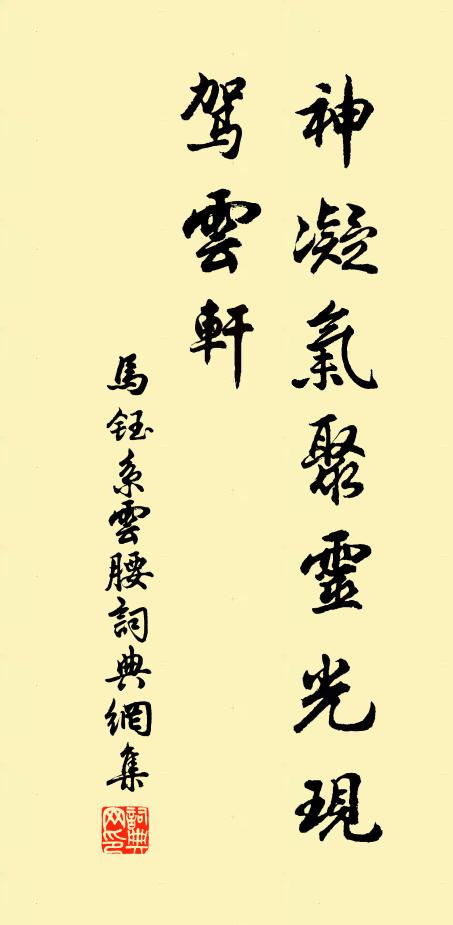 神凝氣聚靈光現
駕雲軒
馬鈺系雲腰詞典網集
詞典
网印